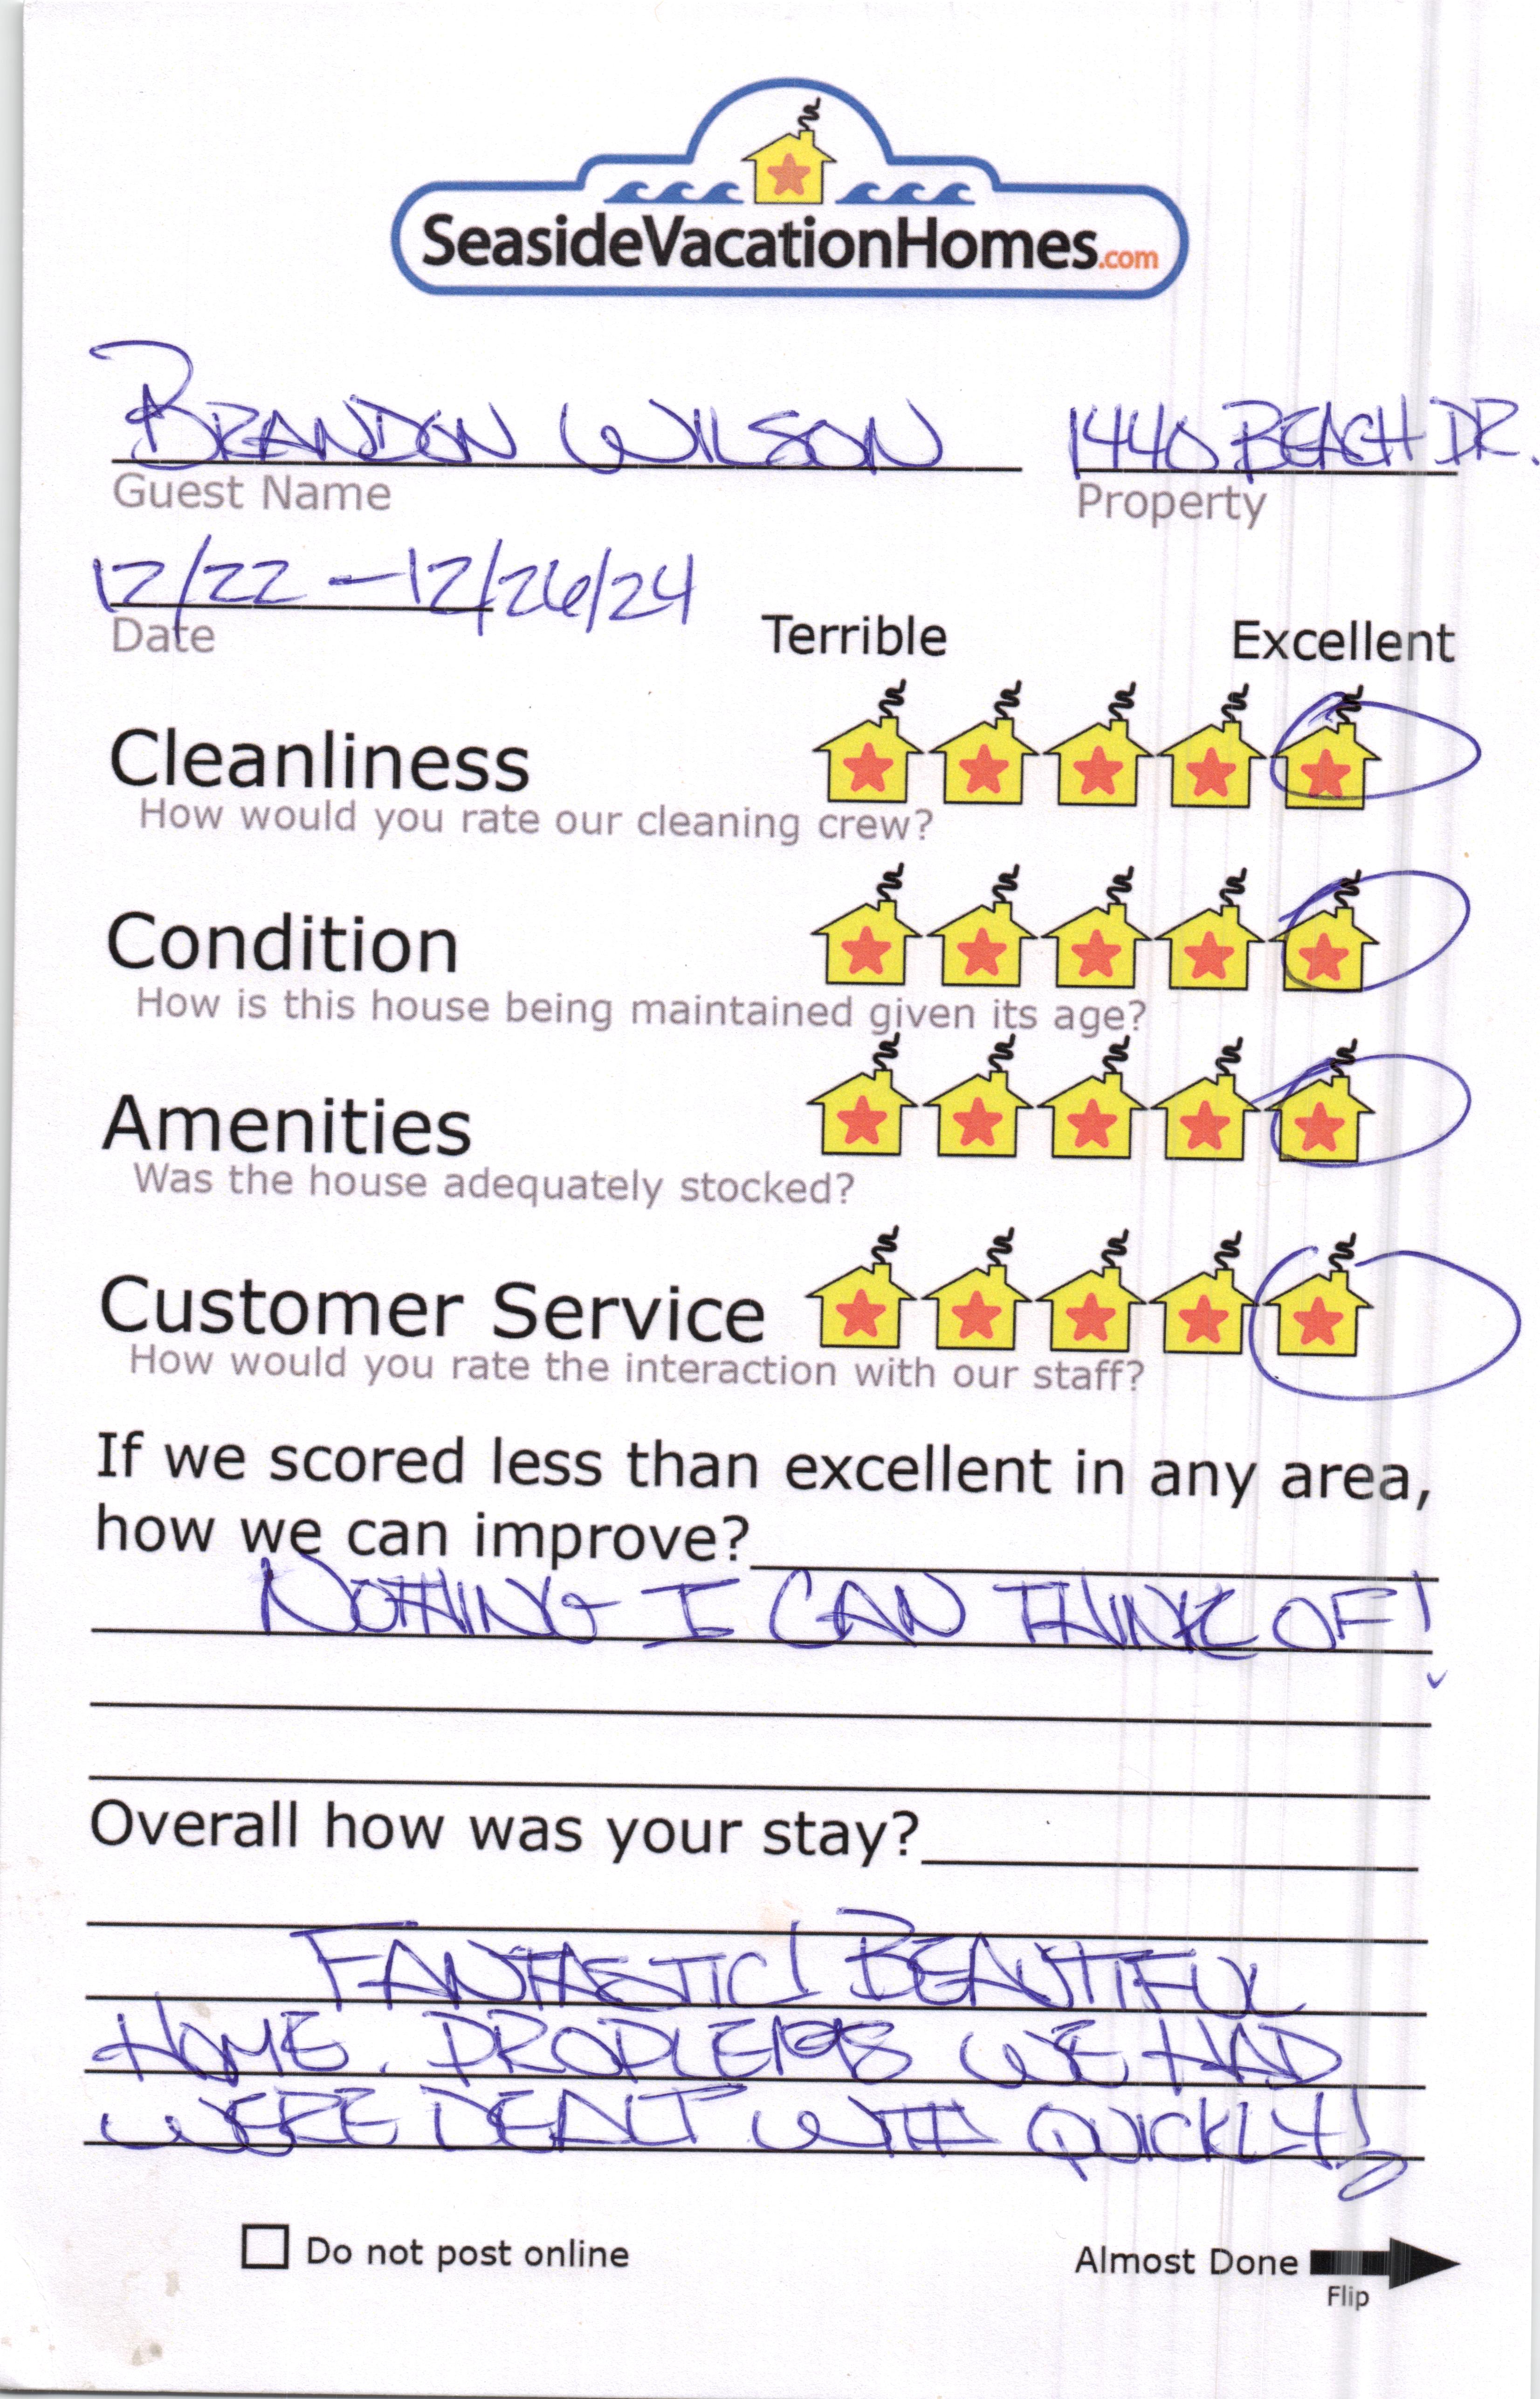 SeasideVacationHomes.com
BRANDON WILSON 1440 BEACH DR.
Guest Name Property
12/22 - 12/26/24
Date
Terrible Excellent
Cleanliness
How would you rate our cleaning crew?
Condition
How is this house being maintained given its age?
Amenities
Was the house adequately stocked?
Customer Service
How would you rate the interaction with our staff?
If we scored less than excellent in any area,
how we can improve?
NOTHING I CAN THINK OF!
Overall how was your stay?
FANTASTIC! BEAUTIFUL
HOME. PROBLEMS WE HAD
WERE DEALT WITH QUICKLY!
Do not post online Almost Done
Flip